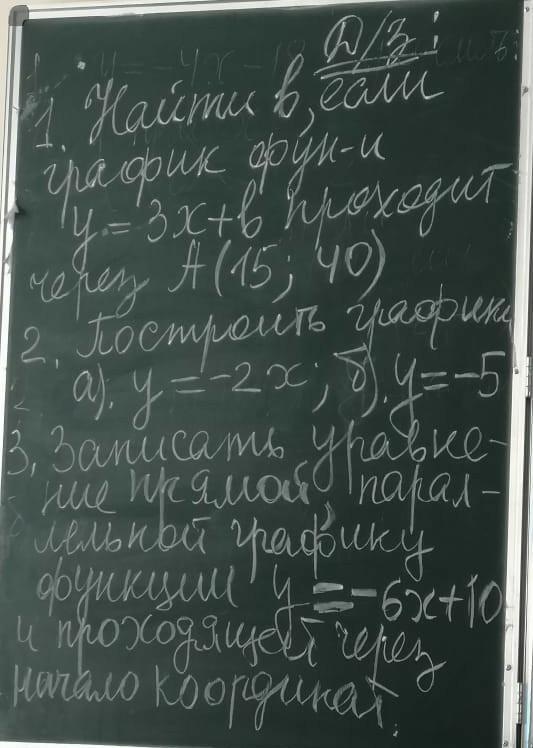 Д/З:
1. Найти в, если
график фун-и
y = 3x+в проходит
через А(15; 40)
2. Построить графики
а). y = -2x; б). y = -5
3. Записать уравне-
ние прямой, парал-
лельной графику
функции y = -6x+10
и проходящей через
начало координат.